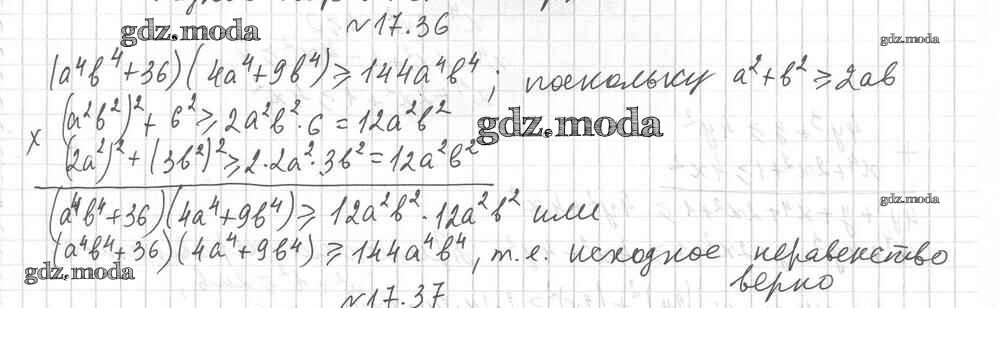 gdz.moda
№17.36
gdz.moda
(a⁴b⁴+36)(4a⁴+9b⁴)≥144a⁴b⁴; поскольку a²+b²≥2ab
x (a²b²)²+6²≥2a²b²·6=12a²b²
gdz.moda
(2a²)²+(3b²)²≥2·2a²·3b²=12a²b²
(a⁴b⁴+36)(4a⁴+9b⁴)≥12a²b²·12a²b² или
gdz.moda
(a⁴b⁴+36)(4a⁴+9b⁴)≥144a⁴b⁴, т.е. исходное неравенство
верно
gdz.moda
№17.37